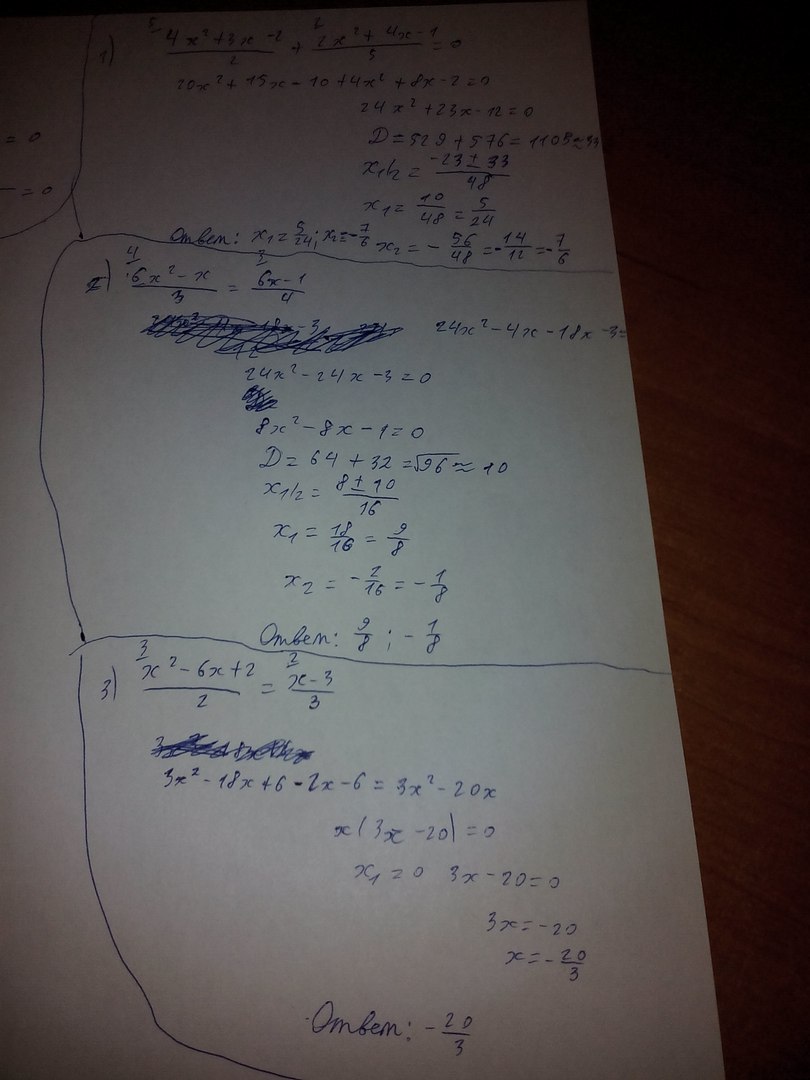 = 0
= 0
1) 5 4x²+3x-2 / 2 + 2 2x²+4x-1 / 5 = 0
20x²+15x-10+4x²+8x-2=0
24x²+23x-12=0
D=529+576=1105≈33
x1/2 = -23±33 / 48
x1 = 10/48 = 5/24
x2 = -56/48 = -14/12 = -7/6
Ответ: x1=5/24; x2=-7/6
2) 4 6x²-x / 3 = 3 6x-1 / 4
24x²-4x-18x-3=
24x²-24x-3=0
8x²-8x-1=0
D=64+32=√96≈10
x1/2 = 8±10 / 16
x1 = 18/16 = 9/8
x2 = -2/16 = -1/8
Ответ: 9/8; -1/8
3) 3 x²-6x+2 / 2 = 2 x-3 / 3
3x²-18x+6-2x-6=3x²-20x
x(3x-20)=0
x1=0 3x-20=0
3x=-20
x=-20/3
Ответ: -20/3